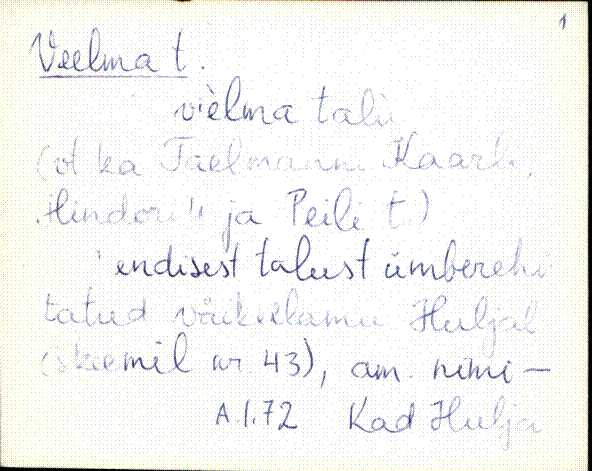 1
Veelma t.
vièlma talu
(vt ka Taelmanni Kaarli,
Hindori ja Peili t.)
endisest talust ümberehi
tatud väikeelamu Huljal
(skeemil nr 43), am. nimi –
A.I.72 Kad Hulja